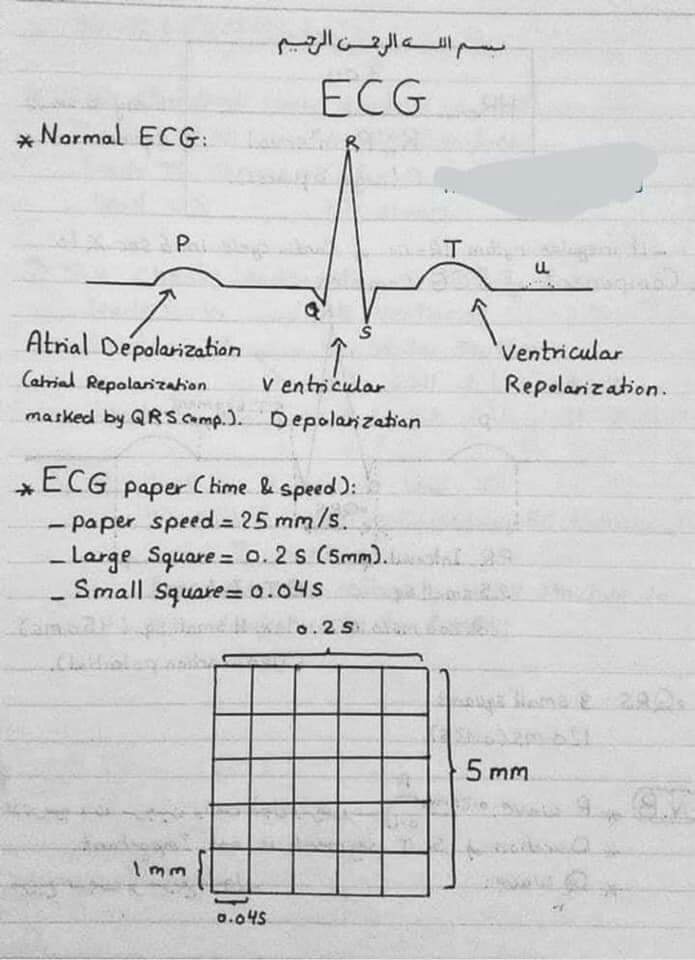 بسم الله الرحمن الرحيم
ECG
* Normal ECG:
R
P
T
u
Q
S
Atrial Depolarization
(atrial Repolarization
masked by QRS comp.).
Ventricular
Depolarization
Ventricular
Repolarization.
* ECG paper (time & speed):
– paper speed = 25 mm/s.
– Large Square = 0.2 s (5mm).
– Small Square = 0.04s
0.2 s
5 mm
1 mm
0.04s